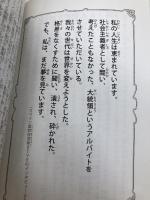 私の人生は恵まれています。
社会主義者として闘い、
考えたこともなかった、大統領というアルバイトを
させていただいている。
我々の世代は世界を変えようとした。
格差をなくすために闘い、潰され、砕かれた。
でも、私は、まだ夢を見ています。